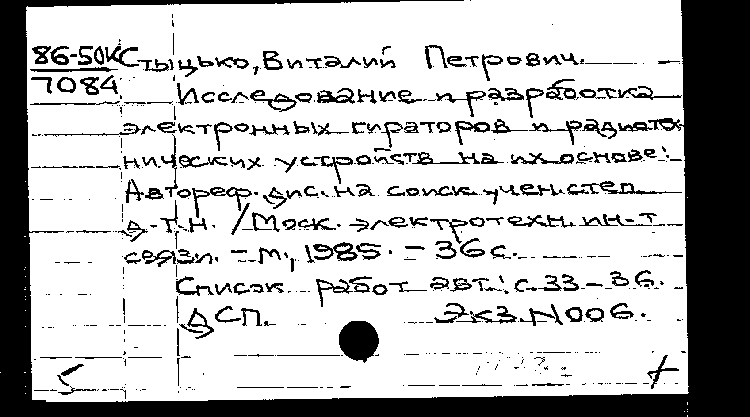 86-50К Стыцько, Виталий Петрович.
7084
Исследование и разработка
электронных гираторов и радиотех
нических устройств на их основе:
Автореф. дис. на соиск. учен. степ.
д.т.н. /Моск. электротехн. ин-т
связи. – М., 1985. – 36 с.
Список работ авт.: с. 33 – 36.
ДСП. Экз. N 006.
5 +